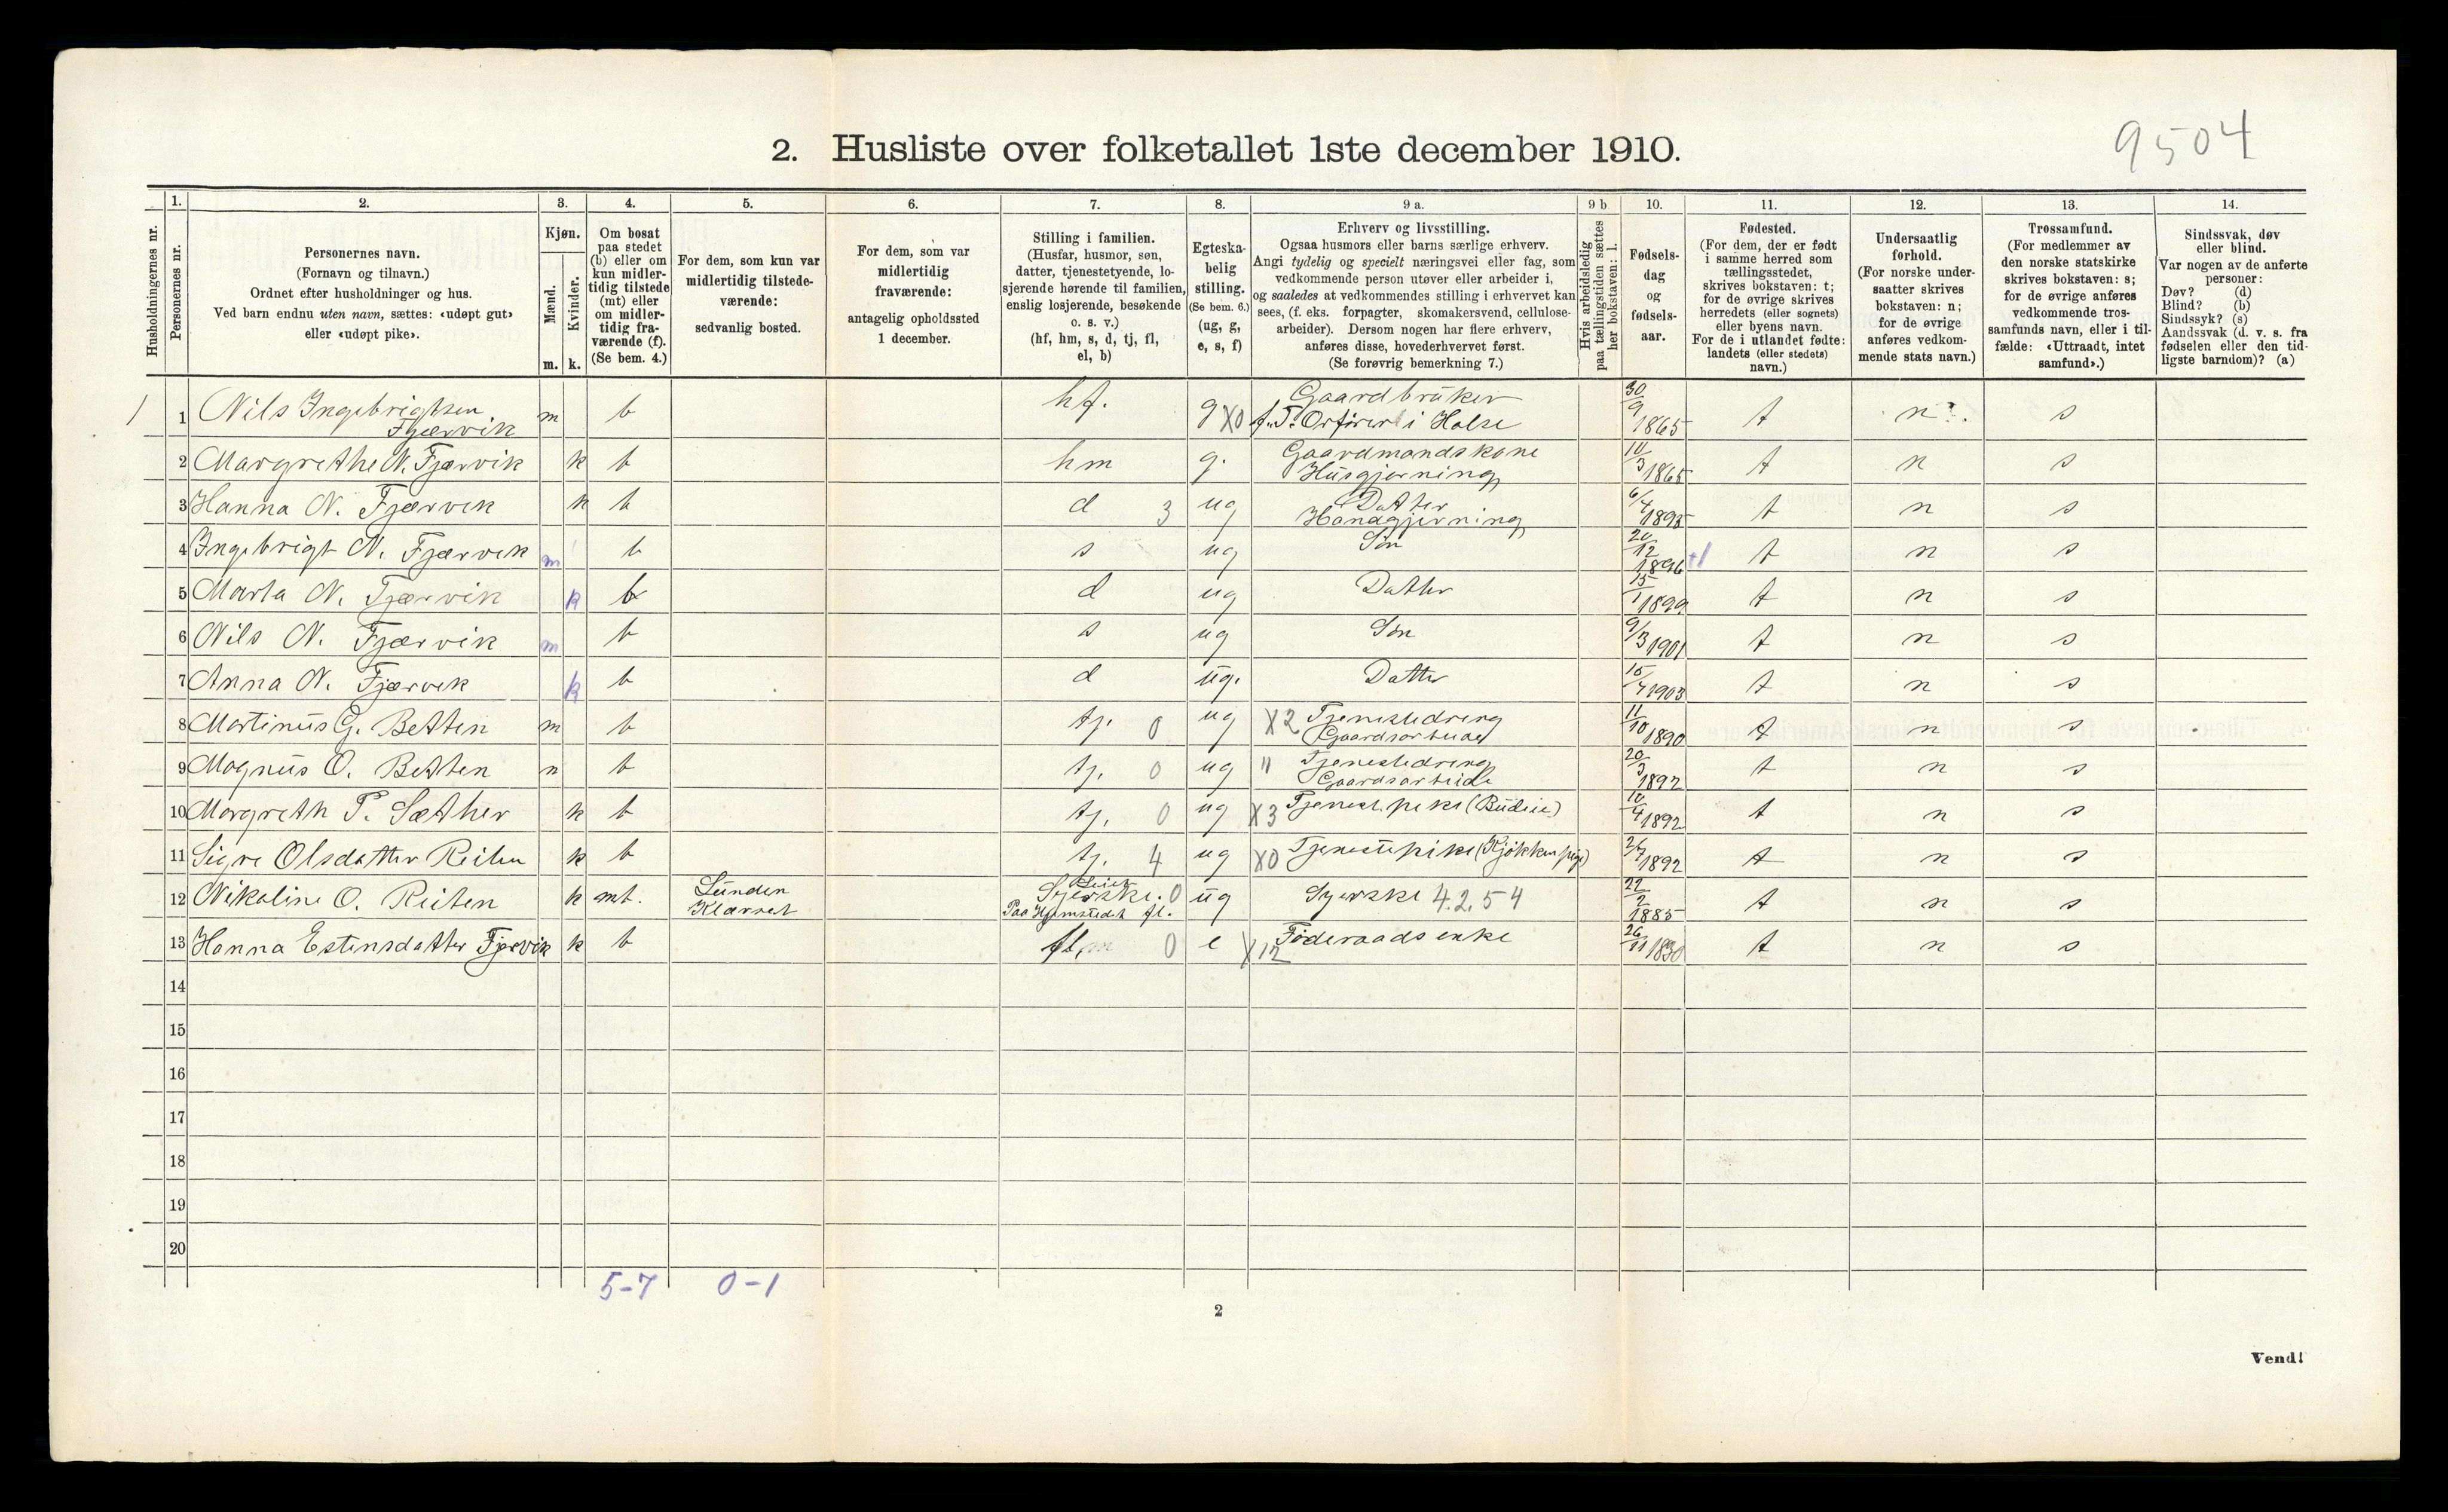 9504
2. Husliste over folketallet 1ste december 1910.
Husholdningernes nr.
1.
Personernes nr.
2.
Personernes navn.
(Fornavn og tilnavn.)
Ordnet efter husholdninger og hus.
Ved barn endnu uten navn, sættes: «udøpt gut»
eller «udøpt pike».
3.
Kjøn.
Mænd.
Kvinder.
m. k.
4.
Om bosat
paa stedet
(b) eller om
kun midler-
tidig tilstede
(mt) eller
om midler-
tidig fra-
værende (f).
(Se bem. 4.)
5.
For dem, som kun var
midlertidig tilstede-
værende:
sedvanlig bosted.
6.
For dem, som var
midlertidig
fraværende:
antagelig opholdssted
1 december.
7.
Stilling i familien.
(Husfar, husmor, søn,
datter, tjenestetyende, lo-
sjerende hørende til familien,
enslig losjerende, besøkende
o. s. v.)
(hf, hm, s, d, tj, fl,
el, b)
8.
Egteska-
belig
stilling.
(Se bem. 6.)
(ug, g,
e, s, f)
9 a.
Erhverv og livsstilling.
Ogsaa husmors eller barns særlige erhverv.
Angi tydelig og specielt næringsvei eller fag, som
vedkommende person utøver eller arbeider i,
og saaledes at vedkommendes stilling i erhvervet kan
sees, (f. eks. forpagter, skomakersvend, cellulose-
arbeider). Dersom nogen har flere erhverv,
anføres disse, hovederhvervet først.
(Se forøvrig bemerkning 7.)
9 b
Hvis arbeidsledig
paa tællingstiden sættes
her bokstaven: l.
10.
Fødsels-
dag
og
fødsels-
aar.
11.
Fødested.
(For dem, der er født
i samme herred som
tællingsstedet,
skrives bokstaven: t;
for de øvrige skrives
herredets (eller sognets)
eller byens navn.
For de i utlandet fødte:
landets (eller stedets)
navn.)
12.
Undersaatlig
forhold.
(For norske under-
saatter skrives
bokstaven: n;
for de øvrige
anføres vedkom-
mende stats navn.)
13.
Trossamfund.
(For medlemmer av
den norske statskirke
skrives bokstaven: s;
for de øvrige anføres
vedkommende tros-
samfunds navn, eller i til-
fælde: «Uttraadt, intet
samfund».)
14.
Sindssvak, døv
eller blind.
Var nogen av de anførte
personer:
Døv? (d)
Blind? (b)
Sindssyk? (s)
Aandssvak (d. v. s. fra
fødselen eller den tid-
ligste barndom)? (a)
1 1 Nils Ingebrigtsen Fjærvik m b hf. g X0 Gaardbruker f. T. Orfører i Halse 30/9 1865 t n s
2 Margrethe N. Fjærvik k b hm g. Gaardmandskone Husgjerning 10/3 1865 t n s
3 Hanna N. Fjærvik k b d 3 ug Datter Handgjerning 6/4 1895 t n s
4 Ingebrigt N. Fjærvik m b s ug Søn 20/12 1896 +1 t n s
5 Marta N. Fjærvik k b d ug Datter 15/1 1899 t n s
6 Nils N. Fjærvik m b s ug Søn 9/3 1901 t n s
7 Anna N. Fjærvik k b d ug. Datter 15/4 1903 t n s
8 Martinus G. Betten m b tj. 0 ug X2 Tjenestedreng Gaardsarbeide 11/10 1890 t n s
9 Magnus O. Betten m b tj. 0 ug " Tjenestedreng Gaardsarbeide 20/3 1892 t n s
10 Margreth P. Sæther k b tj. 0 ug X3 Tjenest. pike (Budeie) 10/4 1892 t n s
11 Signe Olsdatter Reiten k b tj. 4 ug X0 Tjenestepike (Kjøkkenpige) 24/7 1892 t n s
12 Nikoline O. Reiten k mt. Lunden Klævset Syerske. 0 Paa Hjemstedet fl. ug Syerske 4.2.54 22/2 1885 t n s
13 Hanna Estensdatter Fjærvik k b fl. 0 e X12 Føderaadsenke 26/11 1830 t n s
14
15
16
17
18
19
20
5-7 0-1
2
Vend!